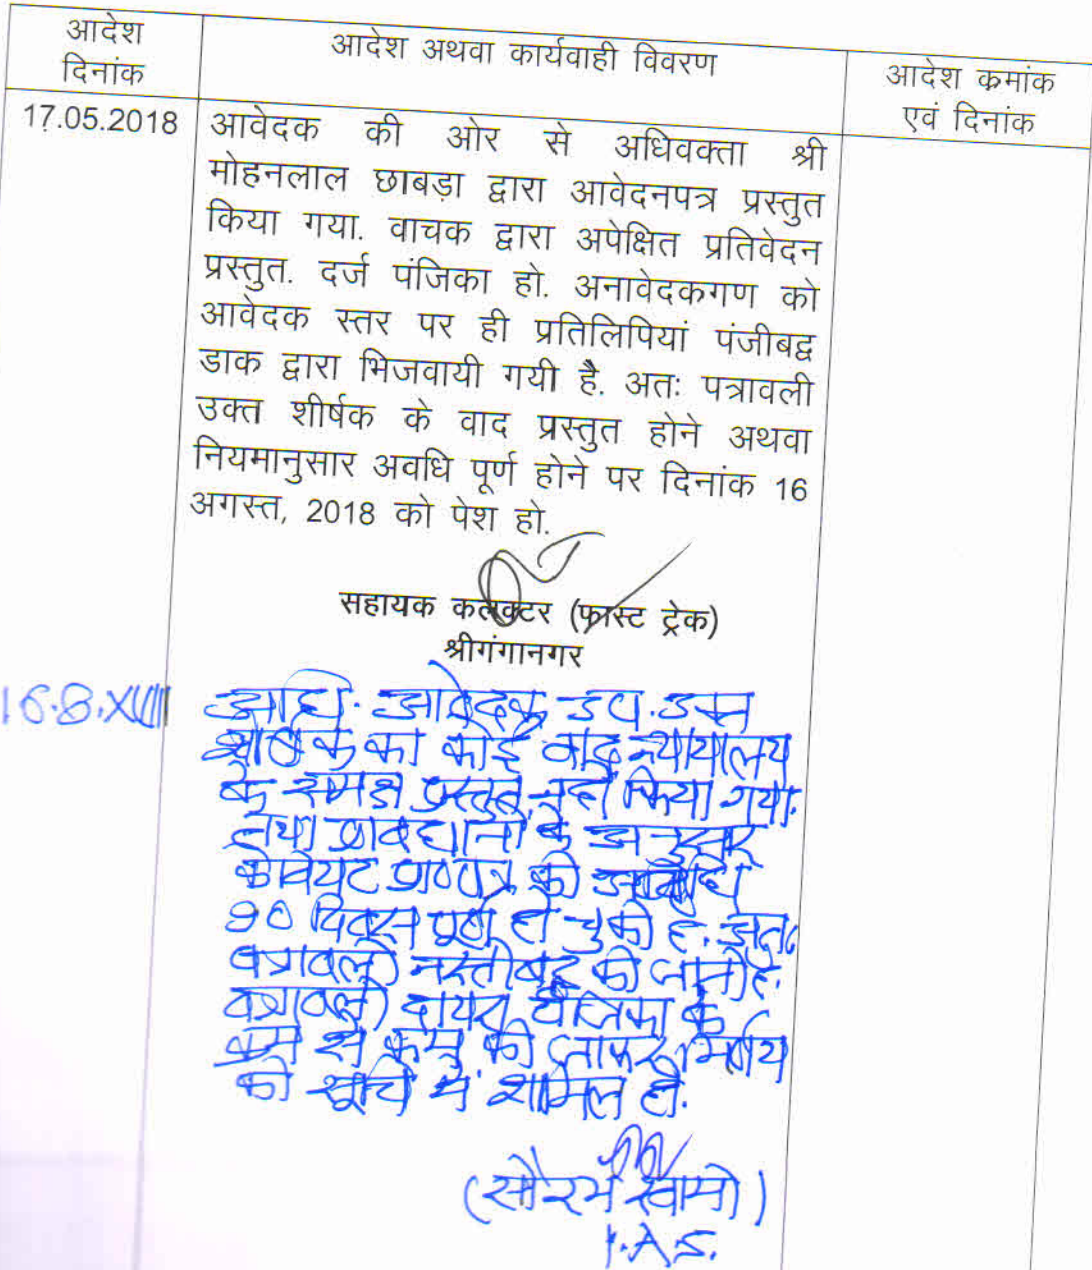 आदेश
दिनांक
आदेश अथवा कार्यवाही विवरण
आदेश क्रमांक
एवं दिनांक
17.05.2018
आवेदक की ओर से अधिवक्ता श्री
मोहनलाल छाबड़ा द्वारा आवेदनपत्र प्रस्तुत
किया गया. वाचक द्वारा अपेक्षित प्रतिवेदन
प्रस्तुत. दर्ज पंजिका हो. अनावेदकगण को
आवेदक स्तर पर ही प्रतिलिपियां पंजीबद्व
डाक द्वारा भिजवायी गयी है. अतः पत्रावली
उक्त शीर्षक के वाद प्रस्तुत होने अथवा
नियमानुसार अवधि पूर्ण होने पर दिनांक 16
अगस्त, 2018 को पेश हो.
सहायक कलेक्टर (फास्ट ट्रेक)
श्रीगंगानगर
16.8.XVIII
अधि. आवेदक उप. उक्त
शीर्षक का कोई वाद न्यायालय
के समक्ष प्रस्तुत नहीं किया गया.
तथा प्रावधानों के अनुसार
केवियट प्रा०पत्र की अवधि
90 दिवस पूर्ण हो चुकी है. अतः
पत्रावली नस्तीबद्ध की जाती है.
पत्रावली दायरा पंजिका के
क्रम से कम की जाकर निर्णय
की सूची में शामिल हो.
(सौरभ स्वामी)
I.A.S.